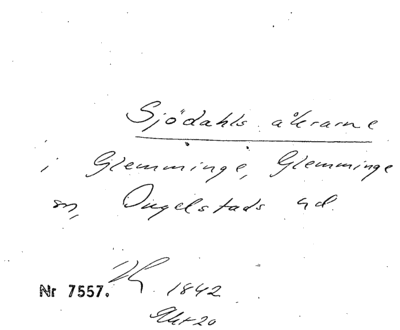 Sjödahls åkrarne
i Glemminge, Glemminge
sn, Ingelstads hd.
Nr 7557. 1842
Akt 20